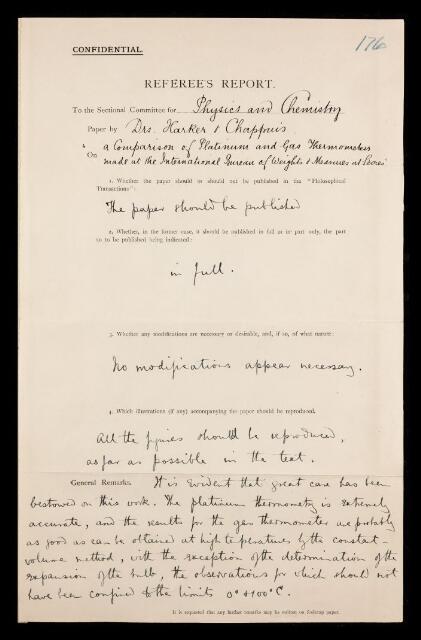 CONFIDENTIAL.
176
REFEREE'S REPORT.
To the Sectional Committee for Physics and Chemistry
Paper by Drs. Harker & Chappuis
On "a Comparison of Platinum and Gas Thermometers
made at the International Bureau of Weights & Measures at Sèvres"
1. Whether the paper should or should not be published in the "Philosophical
Transactions":
The paper should be published
2. Whether, in the former case, it should be published in full or in part only, the part
so to be published being indicated:
in full.
3. Whether any modifications are necessary or desirable, and, if so, of what nature:
No modifications appear necessary.
4. Which illustrations (if any) accompanying the paper should be reproduced.
All the figures should be reproduced,
as far as possible in the text.
General Remarks. It is evident that great care has been
bestowed on this work. The platinum thermometry is extremely
accurate, and the results for the gas thermometer are probably
as good as can be obtained at high temperatures by the constant-
volume method, with the exception of the determination of the
expansion of the bulb, the observations for which should not
have been confined to the limits 0° & 100° C.
It is requested that any further remarks may be written on foolscap paper.